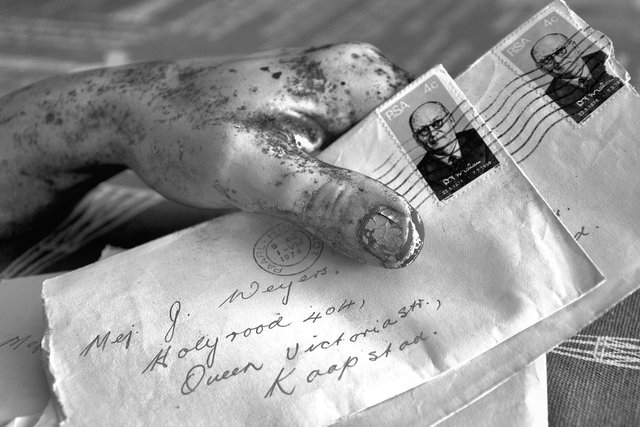 RSA 4c
RSA 4c
PAARL
1974
Mej. J. Weyers,
Holyrood 404,
Queen Victoriastr.,
Kaapstad.